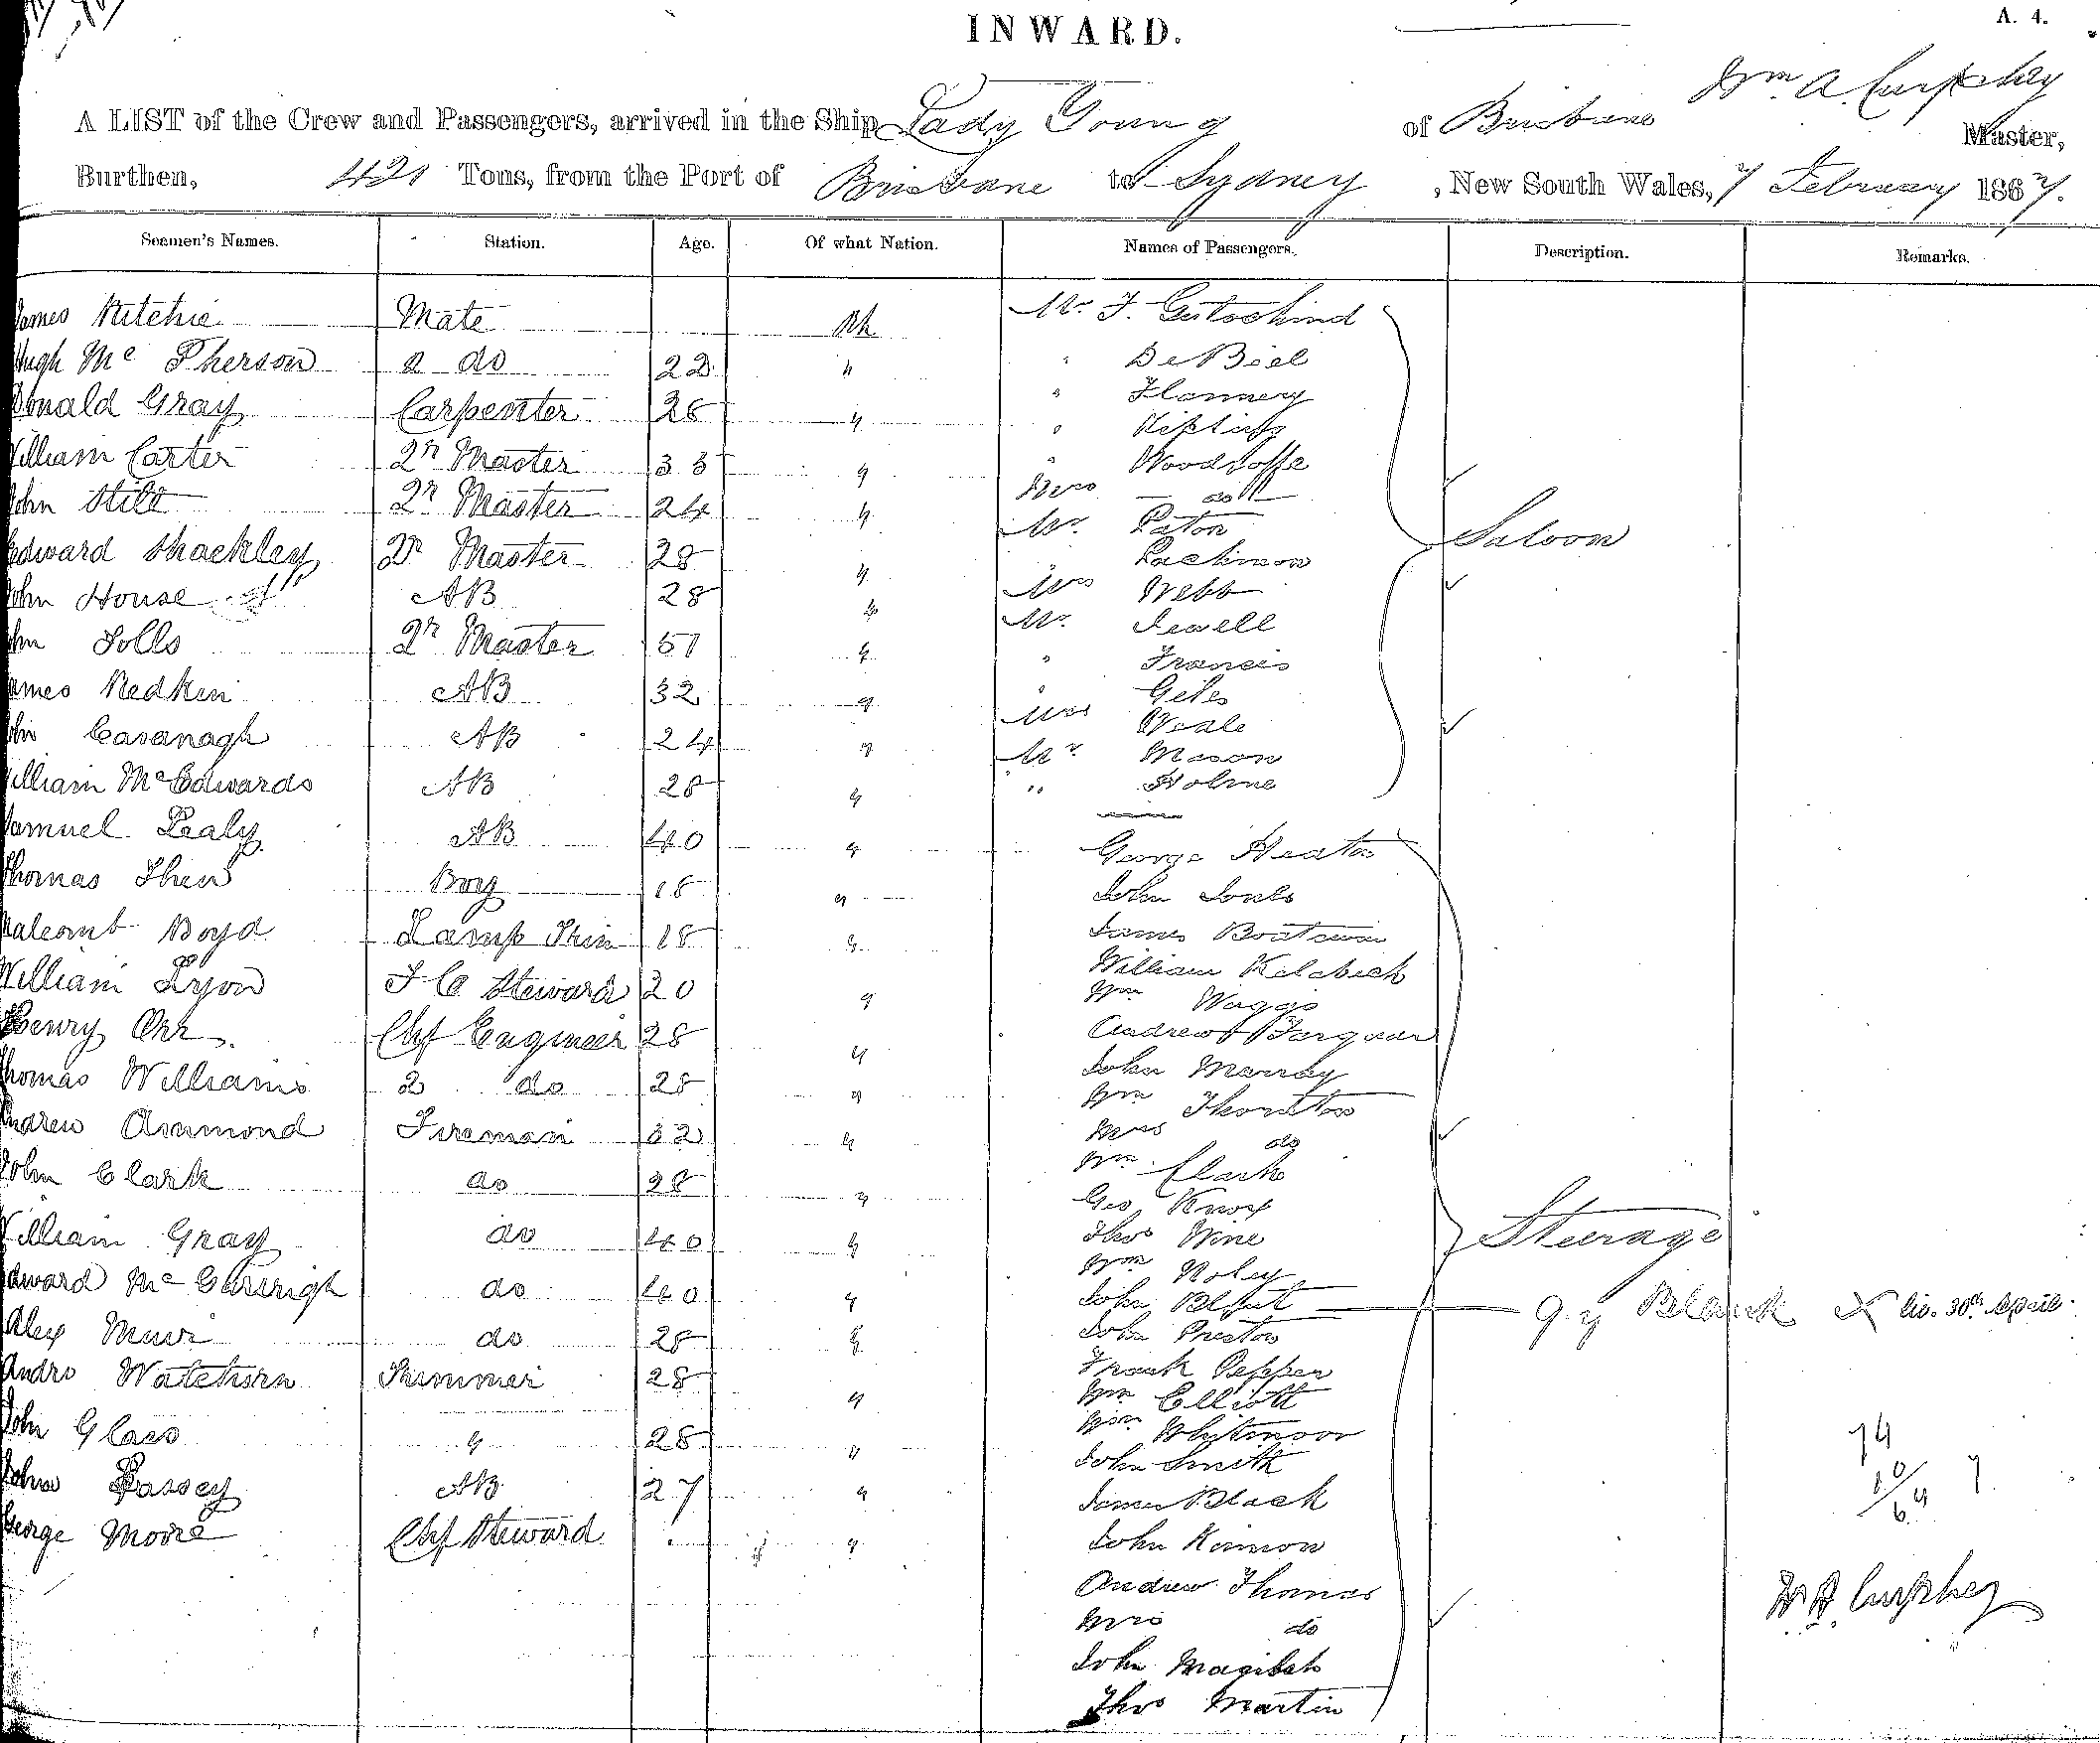 INWARD.
A. 4.
Wm A. Curphey
A LIST of the Crew and Passengers, arrived in the Ship Lady Young of Brisbane Master,
Burthen, 421 Tons, from the Port of Brisbane to Sydney , New South Wales, 7 February 1867.
Seamen's Names. Station. Age. Of what Nation. Names of Passengers. Description. Remarks.
James Ritchie Mate Mr. F.
Hugh McPherson 2 do 22 " " De Biel
Donald Gray Carpenter 26 " " Flannery
William Carter Qr Master 35 " " Kipling
" Woodroffe
Mrs do
John Qr Master 24 " Mr. Paton
Edward Shackley Qr Master 28 " Lachman
John House AB 28 " Mrs Webb
Mr. Jewell
John Solls Qr Master 51 " " Francis
James Redken AB 32 " " Giles
Mrs Weale
John Cavanagh AB 24 " Mr Mason
William McEdwards AB 28 " " Holme
Saloon
Samuel Lealy AB 40 " George Heaton
Thomas Boy 18 " John Jones
Boyd Lamp Trim 18 " James Boatswain
William Lyon F. C. Steward 20 " William
Wm Waggo
Henry Orr Chf Engineer 28 " Andrew Farquar
Thomas Williams 2 do 28 " John Murray
Wm Thornton
Andrew Ammond Fireman 32 " Mrs do
John Clark do 28 " Wm. Clark
Geo Knox
William Gray do 40 " Thos Wine
Wm Roley
Steerage
Edward do 40 " John Blunt X liv. 30th April
Alex Muir do 28 " John Preston
Frank Pepper
Andro Watchorn Trimmer 28 " Wm Elliott
Wm Whitmoor
John Glass " 28 " John Smith
John Passey AB 27 " James Black
George Moore Chf Steward " John Kinnon
Andrew Thomas
Mrs do
John
Thos Martin
74
10/64 7
W A Curphey